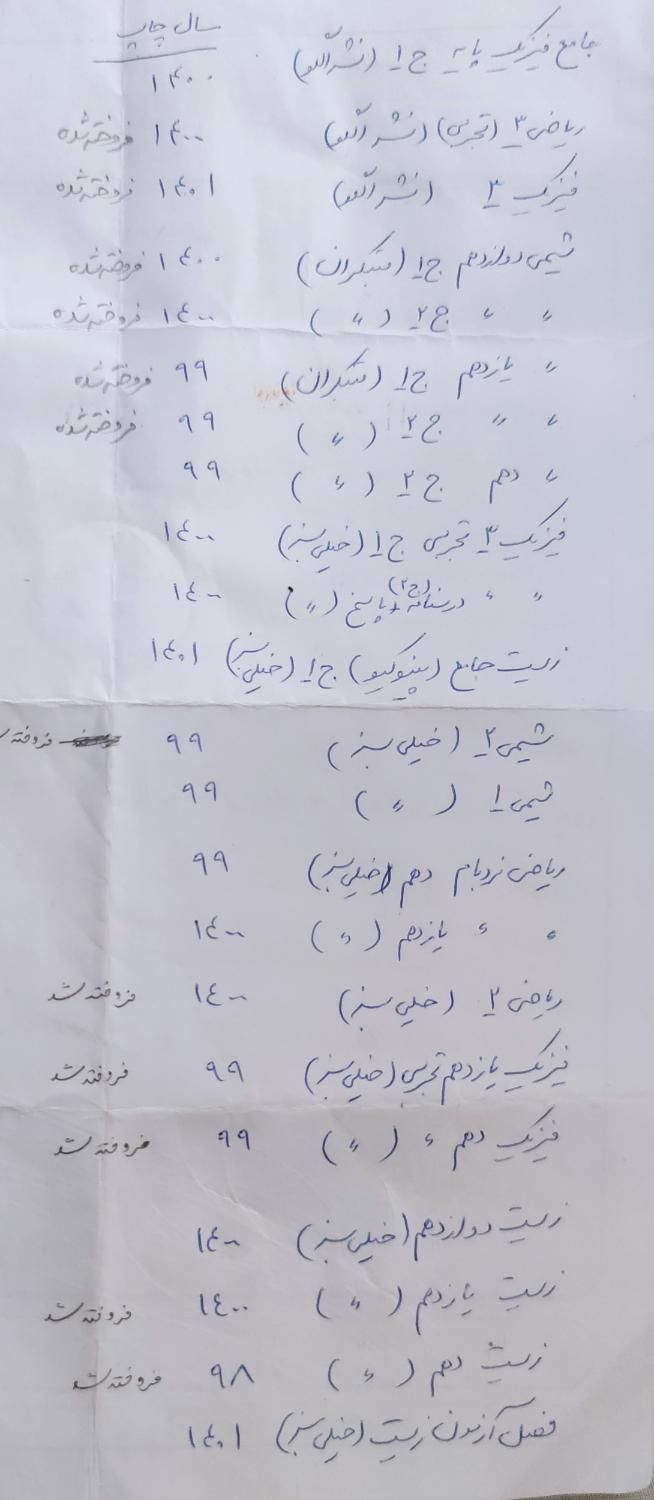 سال چاپ
جامع فیزیک پایه ج ۱ (نشر الگو) ۱۴۰۰
ریاضی ۳ (تجربی) (نشر الگو) ۱۴۰۰ فروخته شده
فیزیک ۳ (نشر الگو) ۱۴۰۱ فروخته شده
شیمی دوازدهم ج ۱ (مبتکران) ۱۴۰۰ فروخته شده
〃 〃 ج ۲ (〃) ۱۴۰۰ فروخته شده
〃 یازدهم ج ۱ (مبتکران) ۹۹ فروخته شده
〃 〃 ج ۲ (〃) ۹۹ فروخته شده
〃 دهم ج ۲ (〃) ۹۹
فیزیک ۳ تجربی ج ۱ (خیلی سبز) ۱۴۰۰
〃 〃 درسنامه + پاسخ (ج ۲) (〃) ۱۴۰۰
زیست جامع (پینوکیو) ج ۱ (خیلی سبز) ۱۴۰۱
شیمی ۲ (خیلی سبز) ۹۹ فروخته
شیمی ۱ (〃) ۹۹
ریاضی نردبام دهم (خیلی سبز) ۹۹
〃 〃 یازدهم (〃) ۱۴۰۰
ریاضی ۲ (خیلی سبز) ۱۴۰۰ فروخته شد
فیزیک یازدهم تجربی (خیلی سبز) ۹۹ فروخته شد
فیزیک دهم 〃 (〃) ۹۹ فروخته شد
زیست دوازدهم (خیلی سبز) ۱۴۰۰
زیست یازدهم (〃) ۱۴۰۰ فروخته شد
زیست دهم (〃) ۹۸ فروخته شد
فصل آزمون زیست (خیلی سبز) ۱۴۰۱